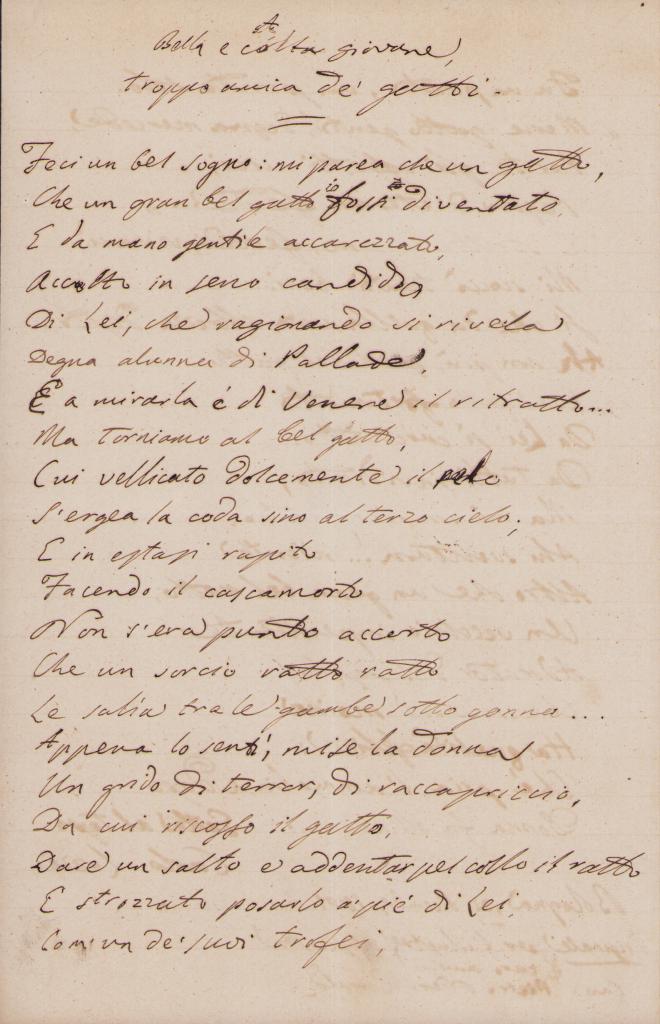 Bella e colta giovane,
troppo amica de' gatti.
Feci un bel sogno: mi parea che un gatto,
Che un gran bel gatto io fossi diventato,
E da mano gentile accarezzato,
Accolto in seno candido
Di Lei, che ragionando si rivela
Degna alunna di Pallade,
E a mirarla è di Venere il ritratto...
Ma torniamo al bel gatto,
Cui vellicato dolcemente il pelo
S'ergea la coda sino al terzo cielo;
E in estasi rapito
Facendo il cascamorto
Non s'era punto accorto
Che un sorcio ratto ratto
Le salía tra le gambe sotto gonna...
Appena lo sentì, mise la donna
Un grido di terror, di raccapriccio,
Da cui riscosso il gatto,
Dare un salto e addentar pel collo il ratto
E strozzato posarlo a' piè di Lei,
Com'un de' suoi trofei,